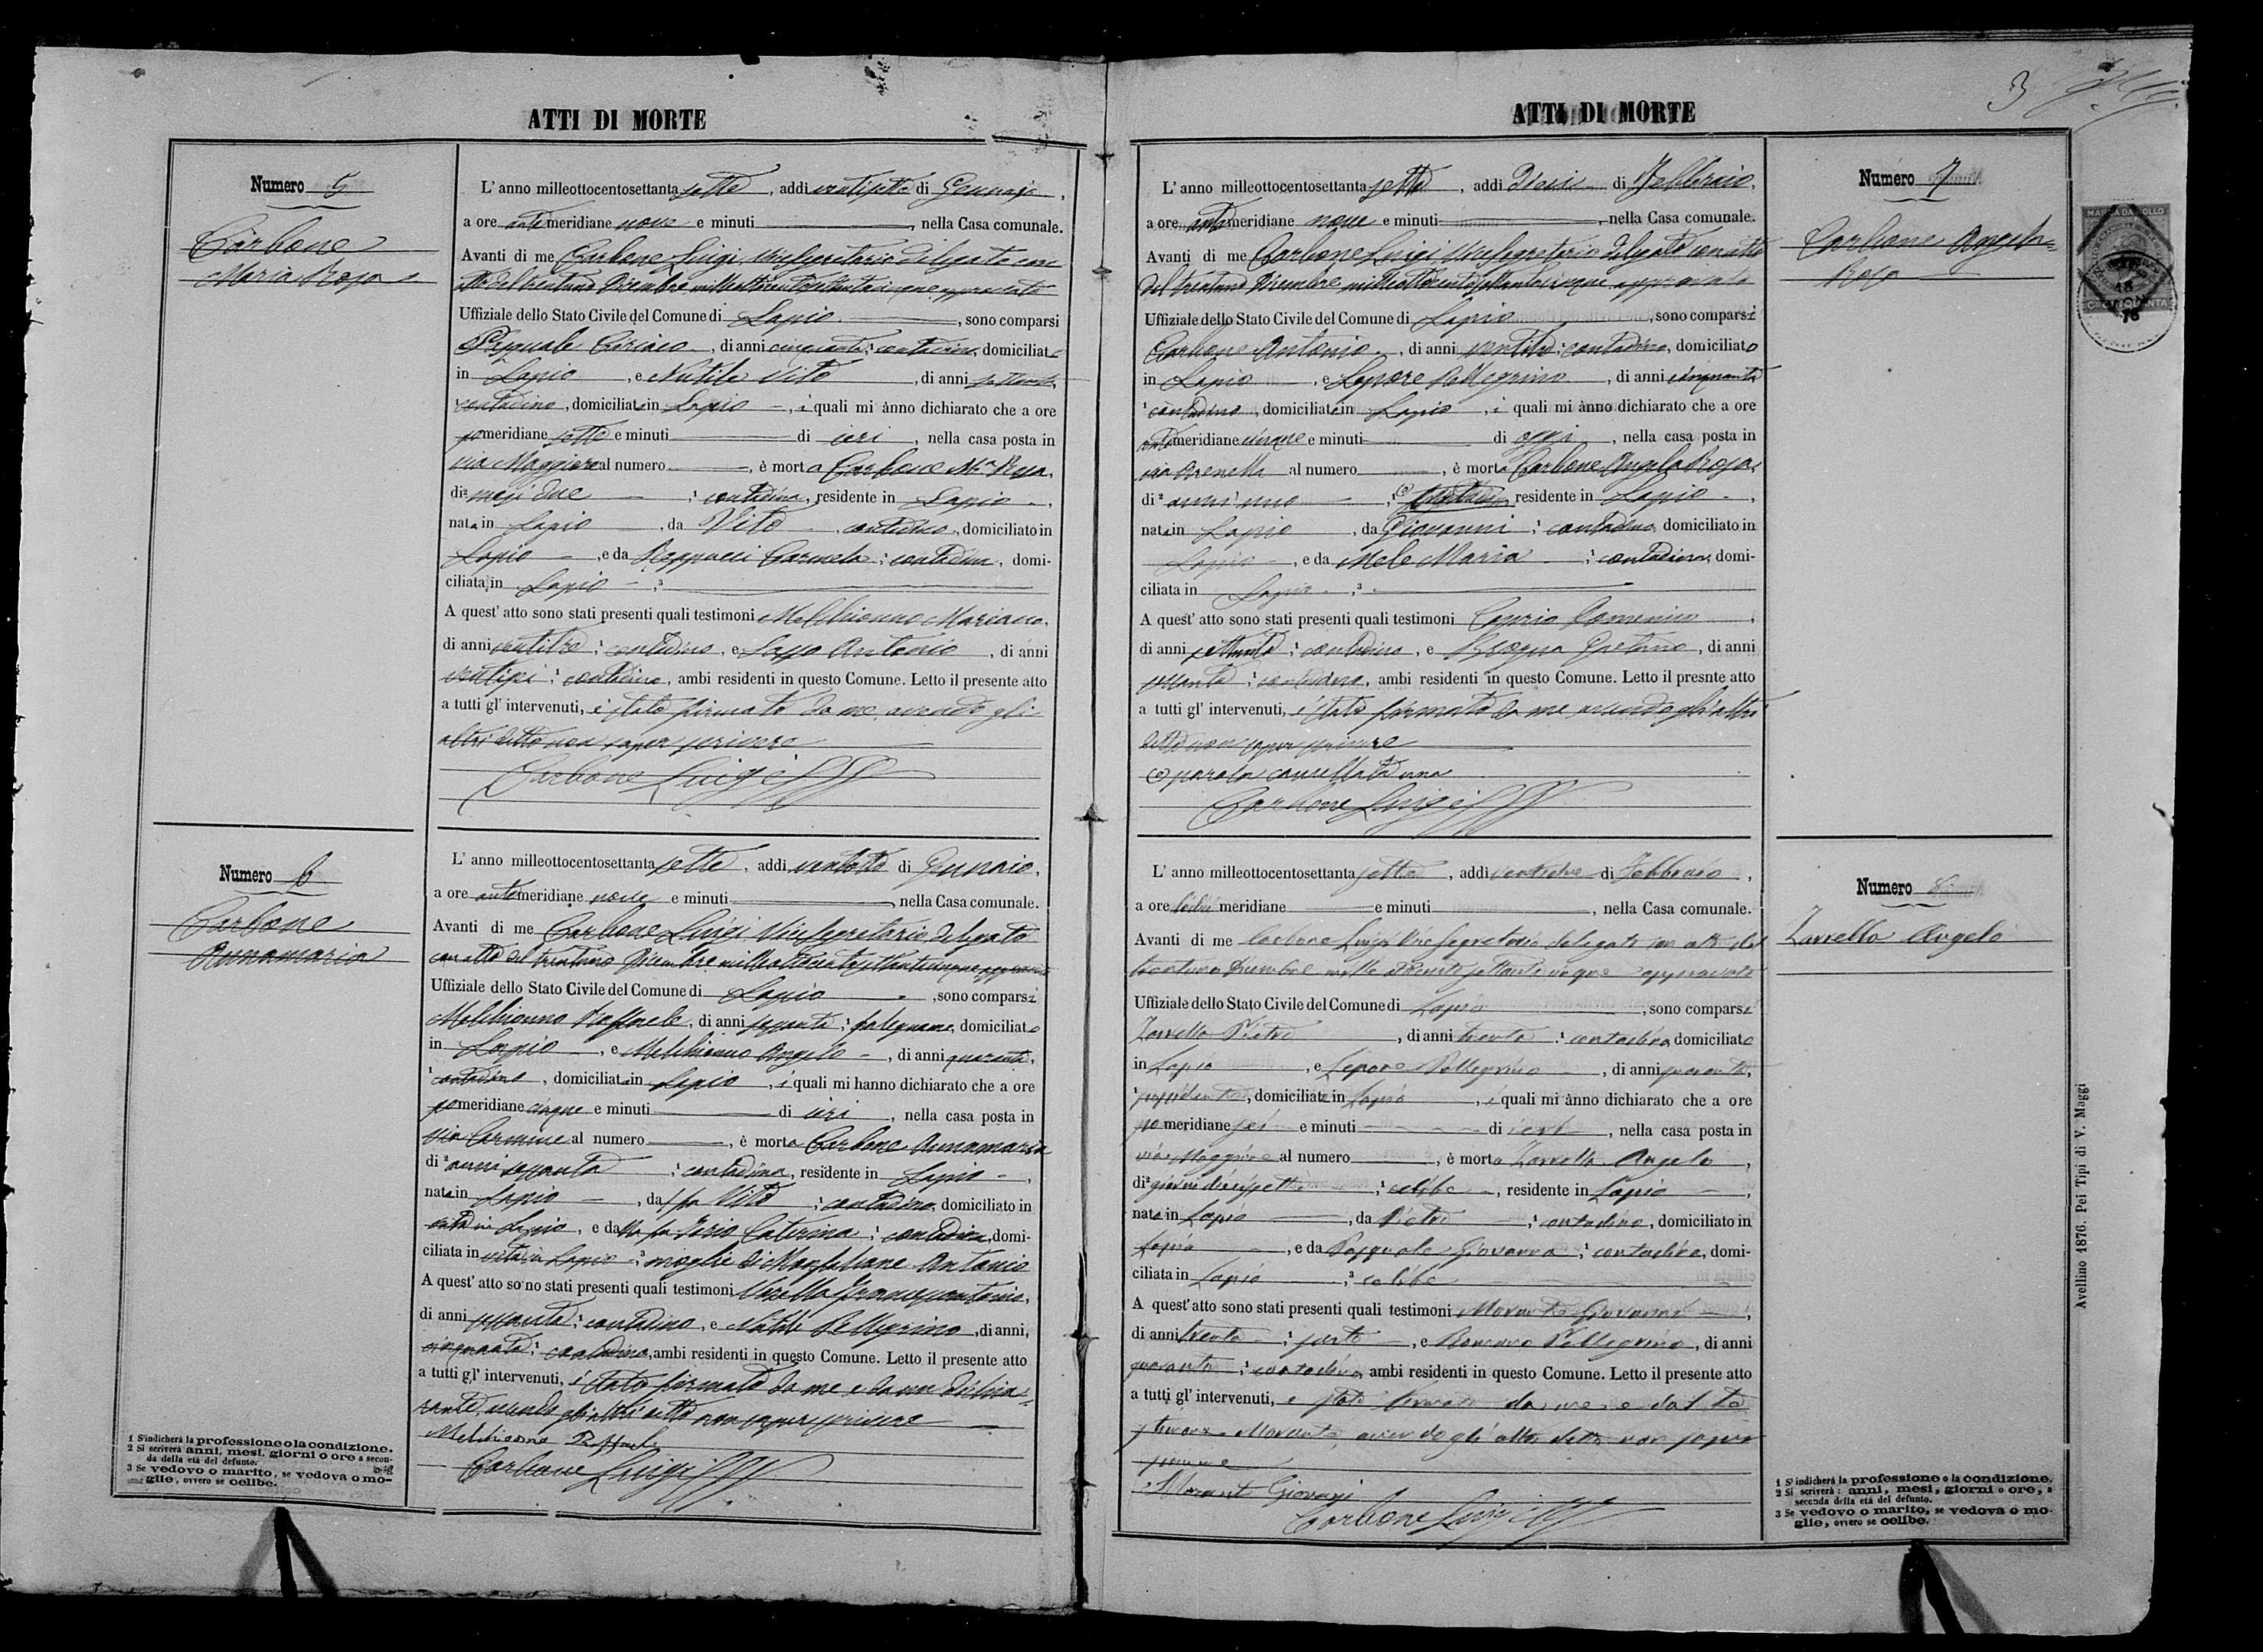 ATTI DI MORTE
Numero 5
Carbone
Maria Rosa
L' anno milleottocentosettanta sette, addi ventisette di Gennajo,
a ore antemeridiane nove e minuti, nella Casa comunale.
Avanti di me Carbone Luigi Vicesegretario delegato con
atto del trentuno Dicembre milleottocentosettantacinque approvato
Uffiziale dello Stato Civile del Comune di Lapio, sono comparsi
Pasquale Ciriaco, di anni cinquanta; contadino, domiciliato
in Lapio, e Nutile Vito, di anni settanta,
contadino, domiciliato in Lapio, i quali mi ànno dichiarato che a ore
pomeridiane sette e minuti di ieri, nella casa posta in
via Maggiore al numero, è morta Carbone Mª Rosa,
di mesi due; contadina, residente in Lapio,
nata in Lapio, da Vito, contadino, domiciliato in
Lapio, e da Carmela; contadina, domi-
ciliata in Lapio
A quest' atto sono stati presenti quali testimoni Melchionno Mariano,
di anni ventitre; contadino, e Antonio, di anni
ventisei; contadino, ambi residenti in questo Comune. Letto il presente atto
a tutti gl' intervenuti, è stato firmato da me, avendo gli
altri detto non saper scrivere
Carbone Luigi
Numero 6
Carbone
Annamaria
L' anno milleottocentosettanta sette, addi ventotto di Gennaio,
a ore antemeridiane nove e minuti, nella Casa comunale.
Avanti di me Carbone Luigi Vicesegretario delegato
con atto del trentuno Dicembre milleottocentosettantacinque approvato
Uffiziale dello Stato Civile del Comune di Lapio, sono comparsi
Melchionno Raffaele, di anni sessanta; falegname, domiciliato
in Lapio, e Melchionno Angelo, di anni quaranta,
contadino, domiciliato in Lapio, i quali mi hanno dichiarato che a ore
pomeridiane cinque e minuti di ieri, nella casa posta in
via Carmine al numero, è morta Carbone Annamaria
di anni sessanta; contadina, residente in Lapio,
nata in Lapio, da fu Vito; contadino, domiciliato in
vita in Lapio, e da fu Caterina; contadina, domi-
ciliata in vita in Lapio; moglie di Antonio
A quest' atto sono stati presenti quali testimoni Francescantonio,
di anni sessanta; contadino, e Pellegrino, di anni,
cinquanta; contadino, ambi residenti in questo Comune. Letto il presente atto
a tutti gl' intervenuti, è stato firmato da me e da un dichia-
rante, avendo gli altri detto non saper scrivere
Melchionno Raffaele
Carbone Luigi
1 S'indicherà la professione o la condizione.
2 Si scriverà anni, mesi, giorni o ore a secon-
da della età del defunto.
3 Se vedovo o marito, se vedova o mo-
glie, ovvero se celibe.
ATTI DI MORTE
3
L' anno milleottocentosettanta sette, addi dieci di Febbraio,
a ore antemeridiane nove e minuti, nella Casa comunale.
Avanti di me Carbone Luigi Vicesegretario delegato con atto
del trentuno Dicembre milleottocentosettantacinque approvato
Uffiziale dello Stato Civile del Comune di Lapio, sono comparsi
Carbone Antonio, di anni ventitre; contadino, domiciliato
in Lapio, e Lepore Pellegrino, di anni cinquanta
contadino, domiciliato in Lapio, i quali mi ànno dichiarato che a ore
antemeridiane cinque e minuti di oggi, nella casa posta in
via Arenella al numero, è morta Carbone Angela Rosa,
di anni uno, residente in Lapio,
nata in Lapio, da Giovanni; contadino, domiciliato in
Lapio, e da Mele Maria; contadina, domi-
ciliata in Lapio
A quest' atto sono stati presenti quali testimoni Caprio Domenico,
di anni settanta; contadino, e Gaetano, di anni
sessanta; contadino, ambi residenti in questo Comune. Letto il presnte atto
a tutti gl' intervenuti, è stato firmato da me avendo gli altri
detto non saper scrivere
parola cancellata una
Carbone Luigi
Numero 7
Carbone Angela=
Rosa
MARCA DA BOLLO
L' anno milleottocentosettanta sette, addi ventidue di Febbraio,
a ore dodici meridiane e minuti, nella Casa comunale.
Avanti di me Carbone Luigi Vice Segretario delegato con atto del
trentuno Dicembre mille ottocento settanta cinque approvato
Uffiziale dello Stato Civile del Comune di Lapio, sono comparsi
Zarrella Pietro, di anni trenta; contadino, domiciliato
in Lapio, e Lepore Pellegrino, di anni quaranta,
domiciliato in Lapio, i quali mi ànno dichiarato che a ore
pomeridiane sei e minuti di ieri, nella casa posta in
via Maggiore al numero, è morto Zarrella Angelo,
di giorni diciassette; celibe, residente in Lapio,
nato in Lapio, da Pietro; contadino, domiciliato in
Lapio, e da Pasquale Giovanna; contadina, domi-
ciliata in Lapio; celibe
A quest' atto sono stati presenti quali testimoni Morante Giovanni,
di anni trenta; sarto, e Romano Pellegrino, di anni
quaranta; contadino, ambi residenti in questo Comune. Letto il presente atto
a tutti gl' intervenuti, e stato firmato da me e dal te
stimone Morante, avendo gli altri detto non saper
scrivere
Morante Giovani
Carbone Luigi
Numero 8
Zarrella Angelo
1 S' indicherà la professione o la condizione.
2 Si scriverà: anni, mesi, giorni o ore, a
seconda della età del defunto.
3 Se vedovo o marito, se vedova o mo-
glie, ovvero se celibe.
Avellino 1876. Pei Tipi di V. Maggi